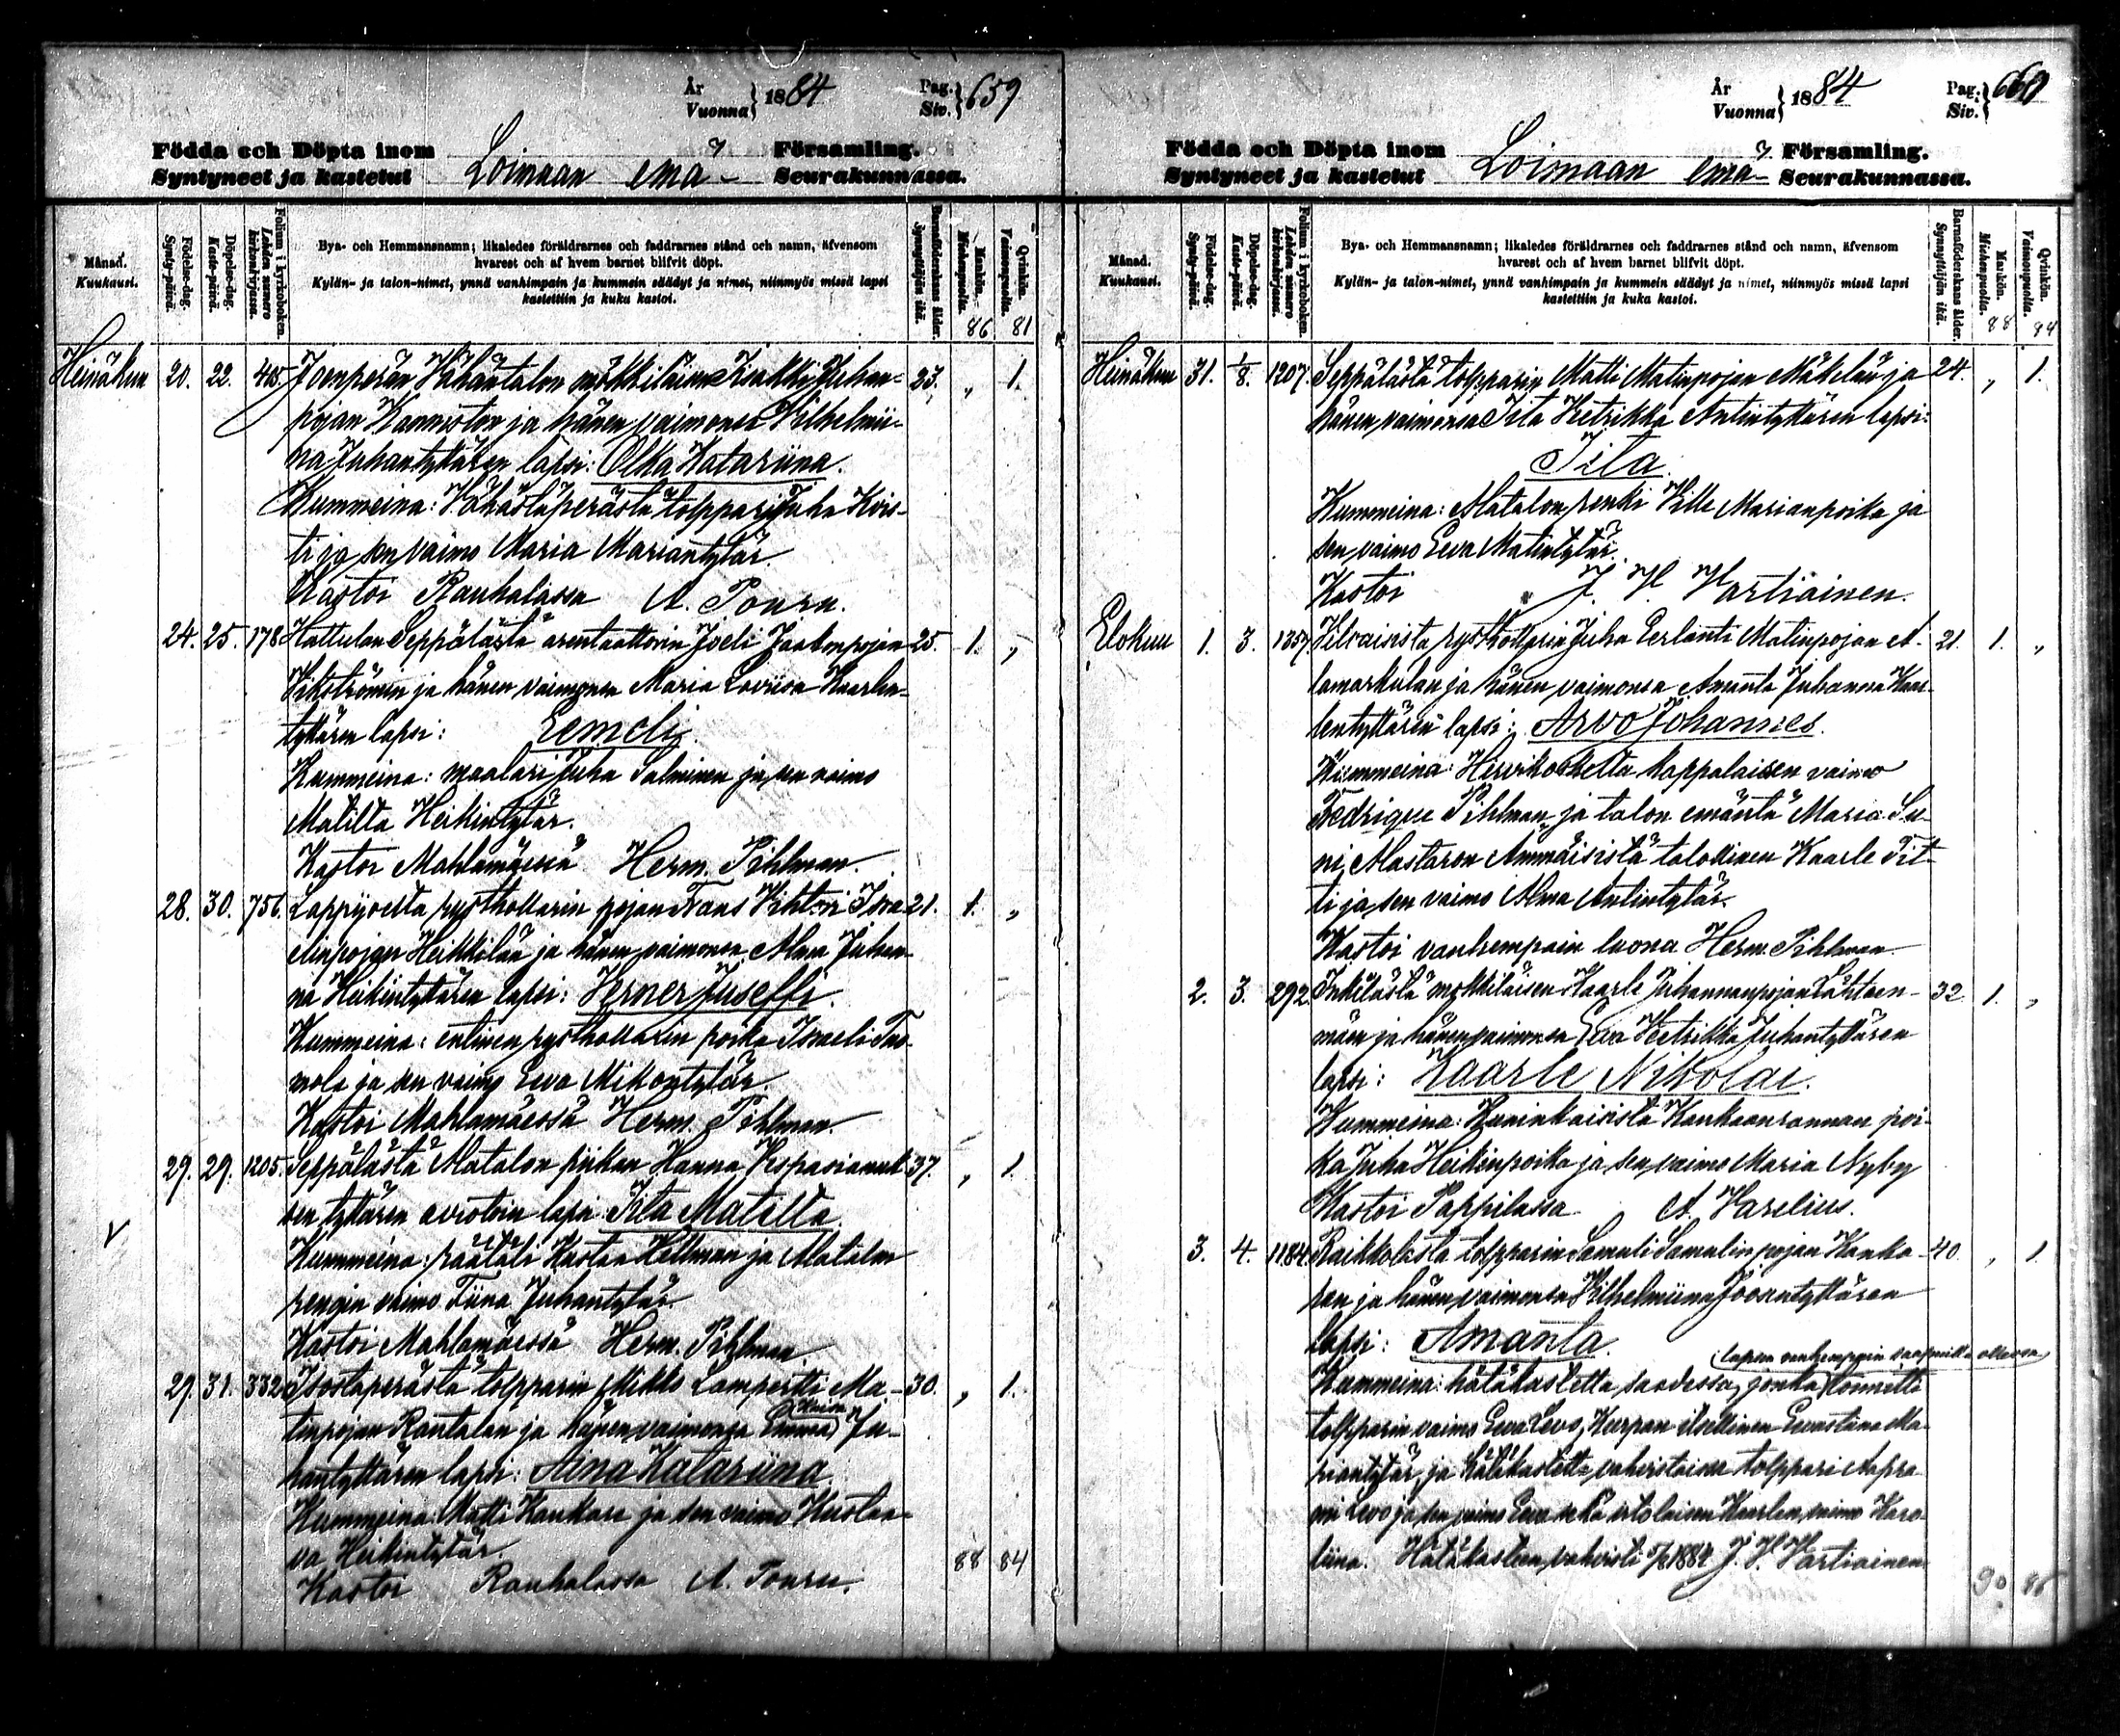 År
Vuonna } 1884
Pag.
Siv. } 659
Födda och Döpta inom Församling.
Syntyneet ja kastetut Loimaan emä- Seurakunnassa.
Månad.
Kuukausi.
Födelse-dag.
Synty-päivä.
Döpelse-dag.
Kaste-päivä.
Folium i kyrkoboken.
Lehden numero kirkonkirjassa.
Bya- och Hemmansnamn; likaledes föräldrarnes och faddrarnes stånd och namn, äfvensom
hvarest och af hvem barnet blifvit döpt.
Kylän- ja talon-nimet, ynnä vanhimpain ja kummein säädyt ja nimet, niinmyös missä lapsi
kastettiin ja kuka kastoi.
Barnföderskans ålder.
Synnyttäjän ikä.
Mankön.
Miehenpuolia.
Qvinkön.
Vaimonpuolia.
86 81
Heinäkuu 20. 22. 405. Joenperän Vähäntalon mökkiläisen Juhan- 23. „ 1.
pojan Kanniston ja hänen vaimonsa Vilhelmii-
na Juhantyttären lapsi: Olka Katariina.
Kummeina: Vähästäperästä tolppari Juha Kois-
ti ja sen vaimo Maria Mariantytär.
Kastoi Rauhalassa A. Pouru.
24. 25. 178 Hattulan Seppälästä arentaattorin Joeli Jaakonpojan 25. 1. „
Vikströmin ja hänen vaimonsa Maria Loviisa Kaarlen-
tyttären lapsi: Eemeli.
Kummeina: maalari Juha Salminen ja sen vaimo
Matilta Heikintytär.
Kastoi Mahlamäessä Herm. Pihlman.
28. 30. 756. Lappijoelta rysthollarin pojan Frans Vihtori Isra- 21. 1. „
elinpojan Heikkilän ja hänen vaimonsa Alma Juhan-
na Heikintyttären lapsi: Verner Juseffi.
Kummeina: entinen rysthollarin poika Israeli Tuo-
mola ja sen vaimo Eeva Mikontytär.
Kastoi Mahlamäessä Herm. Pihlman.
29. 29. 1205. Seppälästä Alatalon piikan Hanna Vespasianuk- 37. „ 1.
sen tyttären aviotoin lapsi: Iita Matilta.
Kummeina: räätäli Kustaa Hellman ja Alatalon
rengin vaimo Tiina Juhantytär.
Kastoi Mahlamäessä Herm. Pihlman.
29. 31. 332 Isostaperästä tolpparin Mikko Lampertti Ma- 30. „ 1.
tinpojan Rantalan ja hänen vaimonsa Emma Ju-
hantyttären lapsi: Aina Katariina
Kummeina: Matti Kankare ja sen vaimo Kustaa-
va Heikintytär.
Kastoi Rauhalassa A. Pouru.
88 84
År
Vuonna } 1884
Pag.
Siv. } 660
Födda och Döpta inom Församling.
Syntyneet ja kastetut Loimaan emä- Seurakunnassa.
Månad.
Kuukausi.
Födelse-dag.
Synty-päivä.
Döpelse-dag.
Kaste-päivä.
Folium i kyrkoboken.
Lehden numero kirkonkirjassa.
Bya- och Hemmansnamn; likaledes föräldrarnes och faddrarnes stånd och namn, äfvensom
hvarest och af hvem barnet blifvit döpt.
Kylän- ja talon-nimet, ynnä vanhimpain ja kummein säädyt ja nimet, niinmyös missä lapsi
kastettiin ja kuka kastoi.
Barnföderskans ålder.
Synnyttäjän ikä.
Mankön.
Miehenpuolia.
Qvinkön.
Vaimonpuolia.
88 84
Heinäkuu 31. 1/8. 1207. Seppälästä tolpparin Matti Matinpojan Mäkelän ja 24. „ 1.
hänen vaimonsa Iita Hetrikka Antintyttären lapsi:
Iita.
Kummeina: Alatalon renki Ville Marianpoika ja
sen vaimo Eeva Matintytär.
Kastoi J. V. Vartiainen.
Elokuu 1. 3. 1357. rysthollarin Juha Eerlanti Matinpojan A- 21. 1. „
lamarkulan ja hänen vaimonsa Amanta Juhanna Kaar-
lentyttären lapsi: Arvo Johannes.
Kummeina: Hirvikoskelta kappalaisen vaimo
Fredrique Pihlman, ja talon emäntä Maria Su-
ni, Alastaron Ammäisistä talollinen Kaarle Tit-
ti ja sen vaimo Alma Antintytär.
Kastoi vanhempain luona Herm. Pihlman.
2. 3. 292 Inkilästä mökkiläisen Kaarle Juhannanpojan Lähteen- 32 1. „
mäen ja hänen vaimonsa Eeva Hetrikka Juhantyttären
lapsi: Kaarle Nikolai.
Kummeina: Kankaanrannan poi-
ka Juha Heikinpoika ja sen vaimo Maria Nyby
Kastoi Pappilassa A. Varelius.
3. 4. 1184. Raikkolasta tolpparin Samuli Samulinpojan Kanka- 40. „ 1.
ren ja hänen vaimonsa Vilhelmiina Joosuntyttären
lapsi: Amanta.
lapsen vanhempain saapuvilla ollessa
Kummeina: hätäkastetta saadessa, jonka toimitti
tolpparin vaimo Eeva Levo, itsellinen Eevastiina Ma-
riantytär, ja hätäkastetta vahvistaissa tolppari Aapra-
mi Levo ja sen vaimo Eeva Kaarlen vaimo Karo-
liina. Hätäkasteen vahvisti 5/8 1884 J. V. Vartiainen
90 85